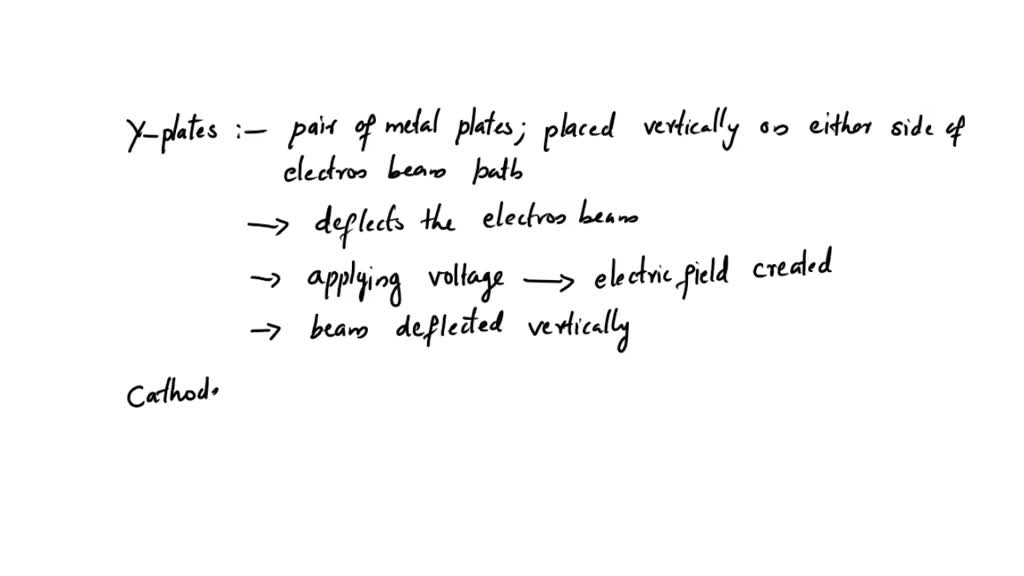 Y-plates :- pair of metal plates; placed vertically on either side of
electron beam path
→ deflects the electron beam
→ applying voltage → electric field created
→ beam deflected vertically
Cathod